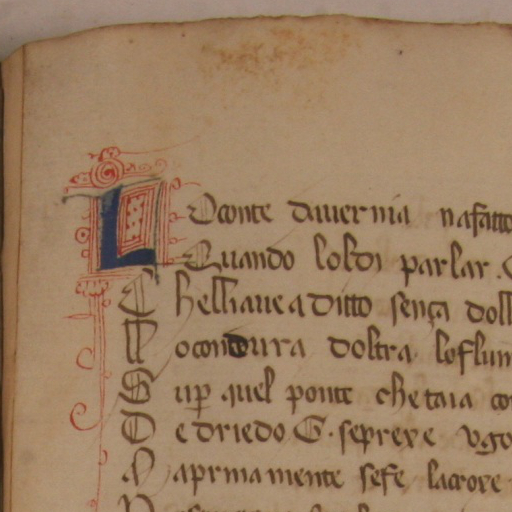 LOconte dauernia nafatto
Quando loldi parlar.
Chelliaue a ditto sença doll
Llo condura doltra loflum
Sup quel ponte che taia co
De driedo G. seprexe vgo
Maprmamente sefe lacroxe